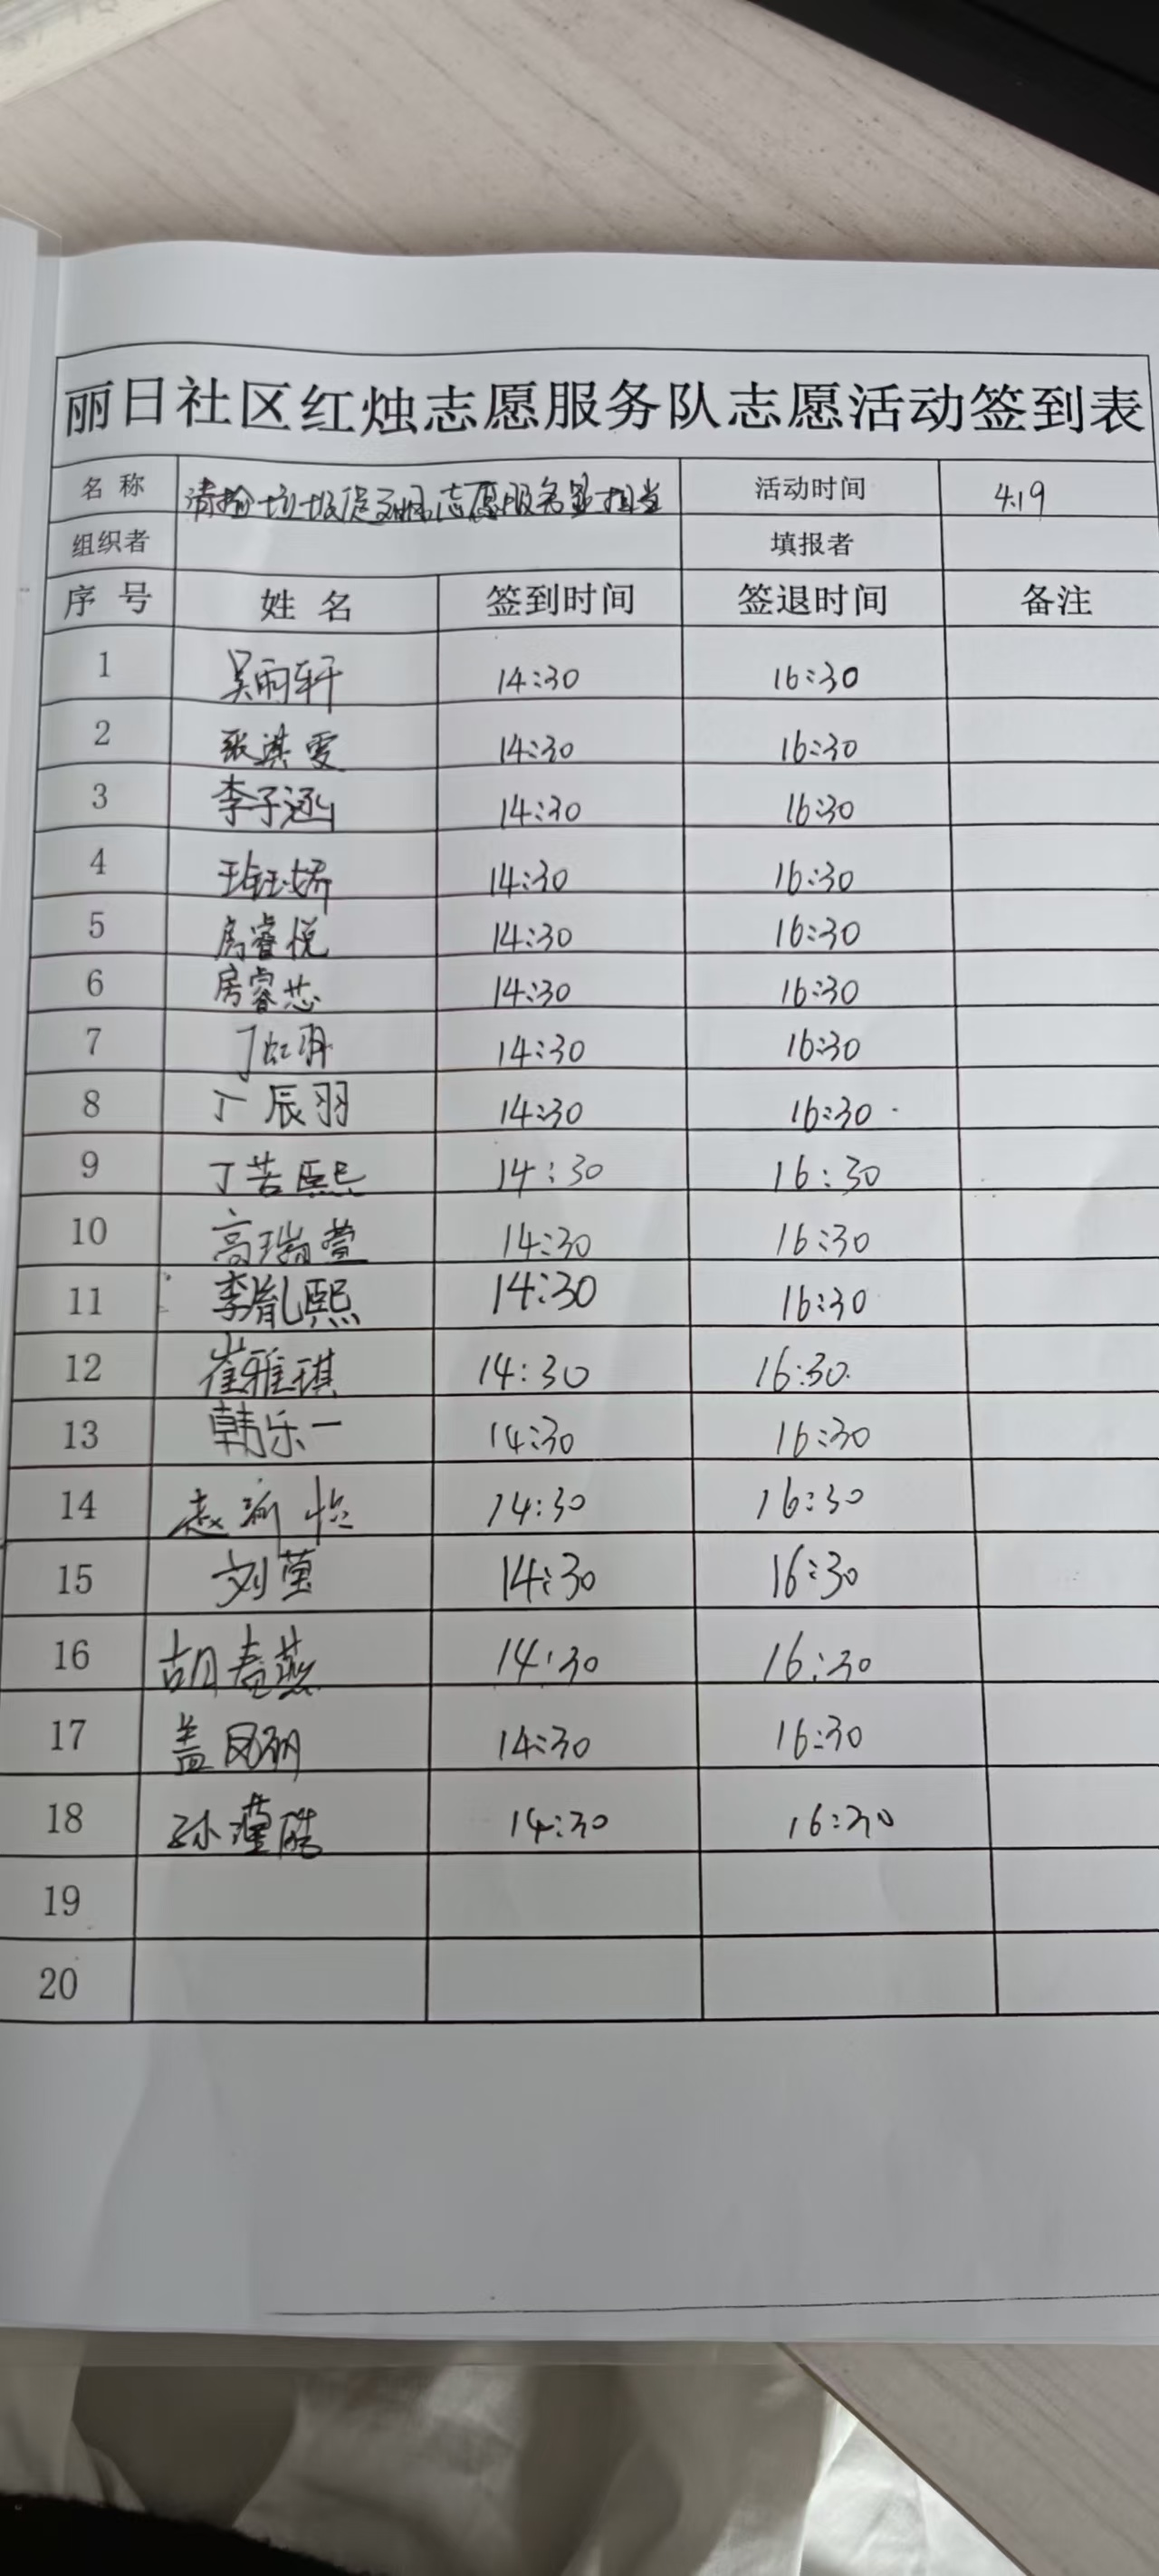 丽日社区红烛志愿服务队志愿活动签到表
名称 清捡垃圾促文明 志愿服务显担当 活动时间 4.19
组织者 填报者
序号 姓名 签到时间 签退时间 备注
1 吴雨轩 14:30 16:30
2 张淇雯 14:30 16:30
3 李子涵 14:30 16:30
4 14:30 16:30
5 房睿悦 14:30 16:30
6 房睿芯 14:30 16:30
7 14:30 16:30
8 丁辰羽 14:30 16:30
9 丁若熙 14:30 16:30
10 高瑞萱 14:30 16:30
11 李胤熙 14:30 16:30
12 崔雅琪 14:30 16:30
13 韩乐一 14:30 16:30
14 赵渝怡 14:30 16:30
15 刘莹 14:30 16:30
16 胡春燕 14:30 16:30
17 盖凤 14:30 16:30
18 孙瑾皓 14:30 16:30
19
20